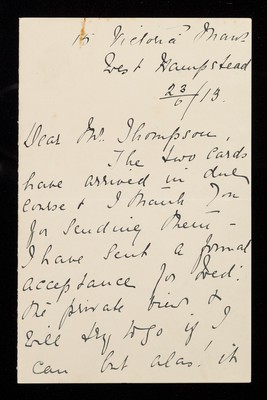 Victoria Mans.
West Hampstead
23/6/13.
Dear Mr. Thompson,
The two cards
have arrived in due
course & I thank you
for sending them –
I have sent a formal
acceptance for Wed:
the private view &
will try to go if I
can but alas! it